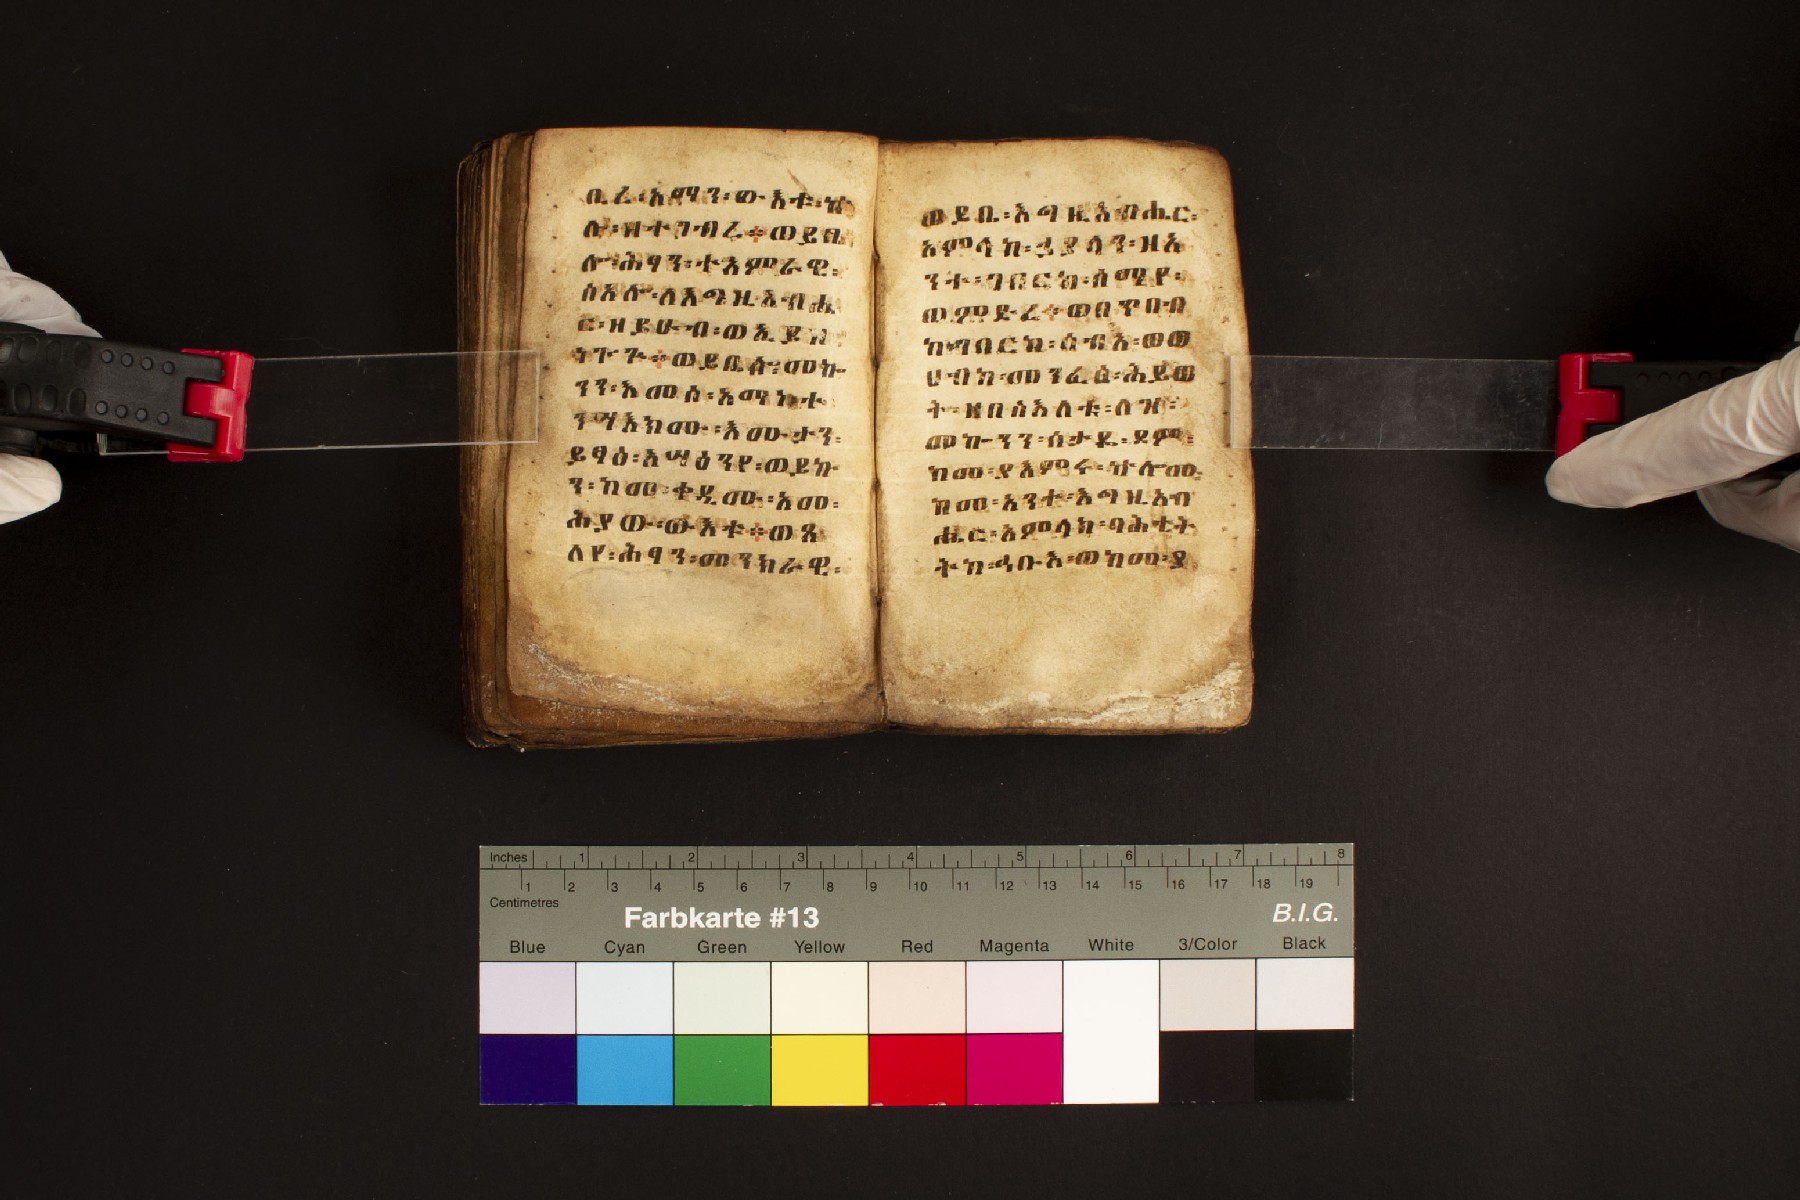 ቢረ፡አማን፡ውእቱ፡ዝ
ሉ፡ዘተገብረ፨ወይቤ
ሎ፡ሕፃን፡ተአምራዊ፡
ሰአሎ፡ለእግዚአብሔ
ር፡ዘይሁብ፡ወኢያ
ወይቤሎ፡መኰ
ንን፡እመሰ፡አማከተ
ንሣእክሙ፡እሙታን፡
ይፃዕ፡አሣዕንየ፡ወይኩ
ን፡ከመ፡ቀዲሙ፡እመ፡
ሕያው፡ውእቱ፨ወጸ
ለየ፡ሕፃን፡መንክራዊ፡
ወይቤ፡እግዚአብሔር፡
አምላክ፡ኃያላን፡ዘአ
ንተ፡ገበርከ፡ሰማየ፡
ወምድረ፨ወበጥበብ
ከ፡ገበርከ፡ሰብእ፡ወወ
ሀብከ፡መንፈሰ፡ሕይወ
ት፡ዘበስእለቱ፡ለዝ፡
መኰንን፡ሰታዬ፡ደም፡
ከመ፡ያእምሩ፡ኵሎሙ፡
ከመ፡አንተ፡እግዚአብ
ሔር፡አምላክ፡ባሕቲት
ትከ፡ኀቡእ፡ወከመ፡ያ
Inches 1 2 3 4 5 6 7 8
1 2 3 4 5 6 7 8 9 10 11 12 13 14 15 16 17 18 19
Centimetres
Farbkarte #13 B.I.G.
Blue Cyan Green Yellow Red Magenta White 3/Color Black